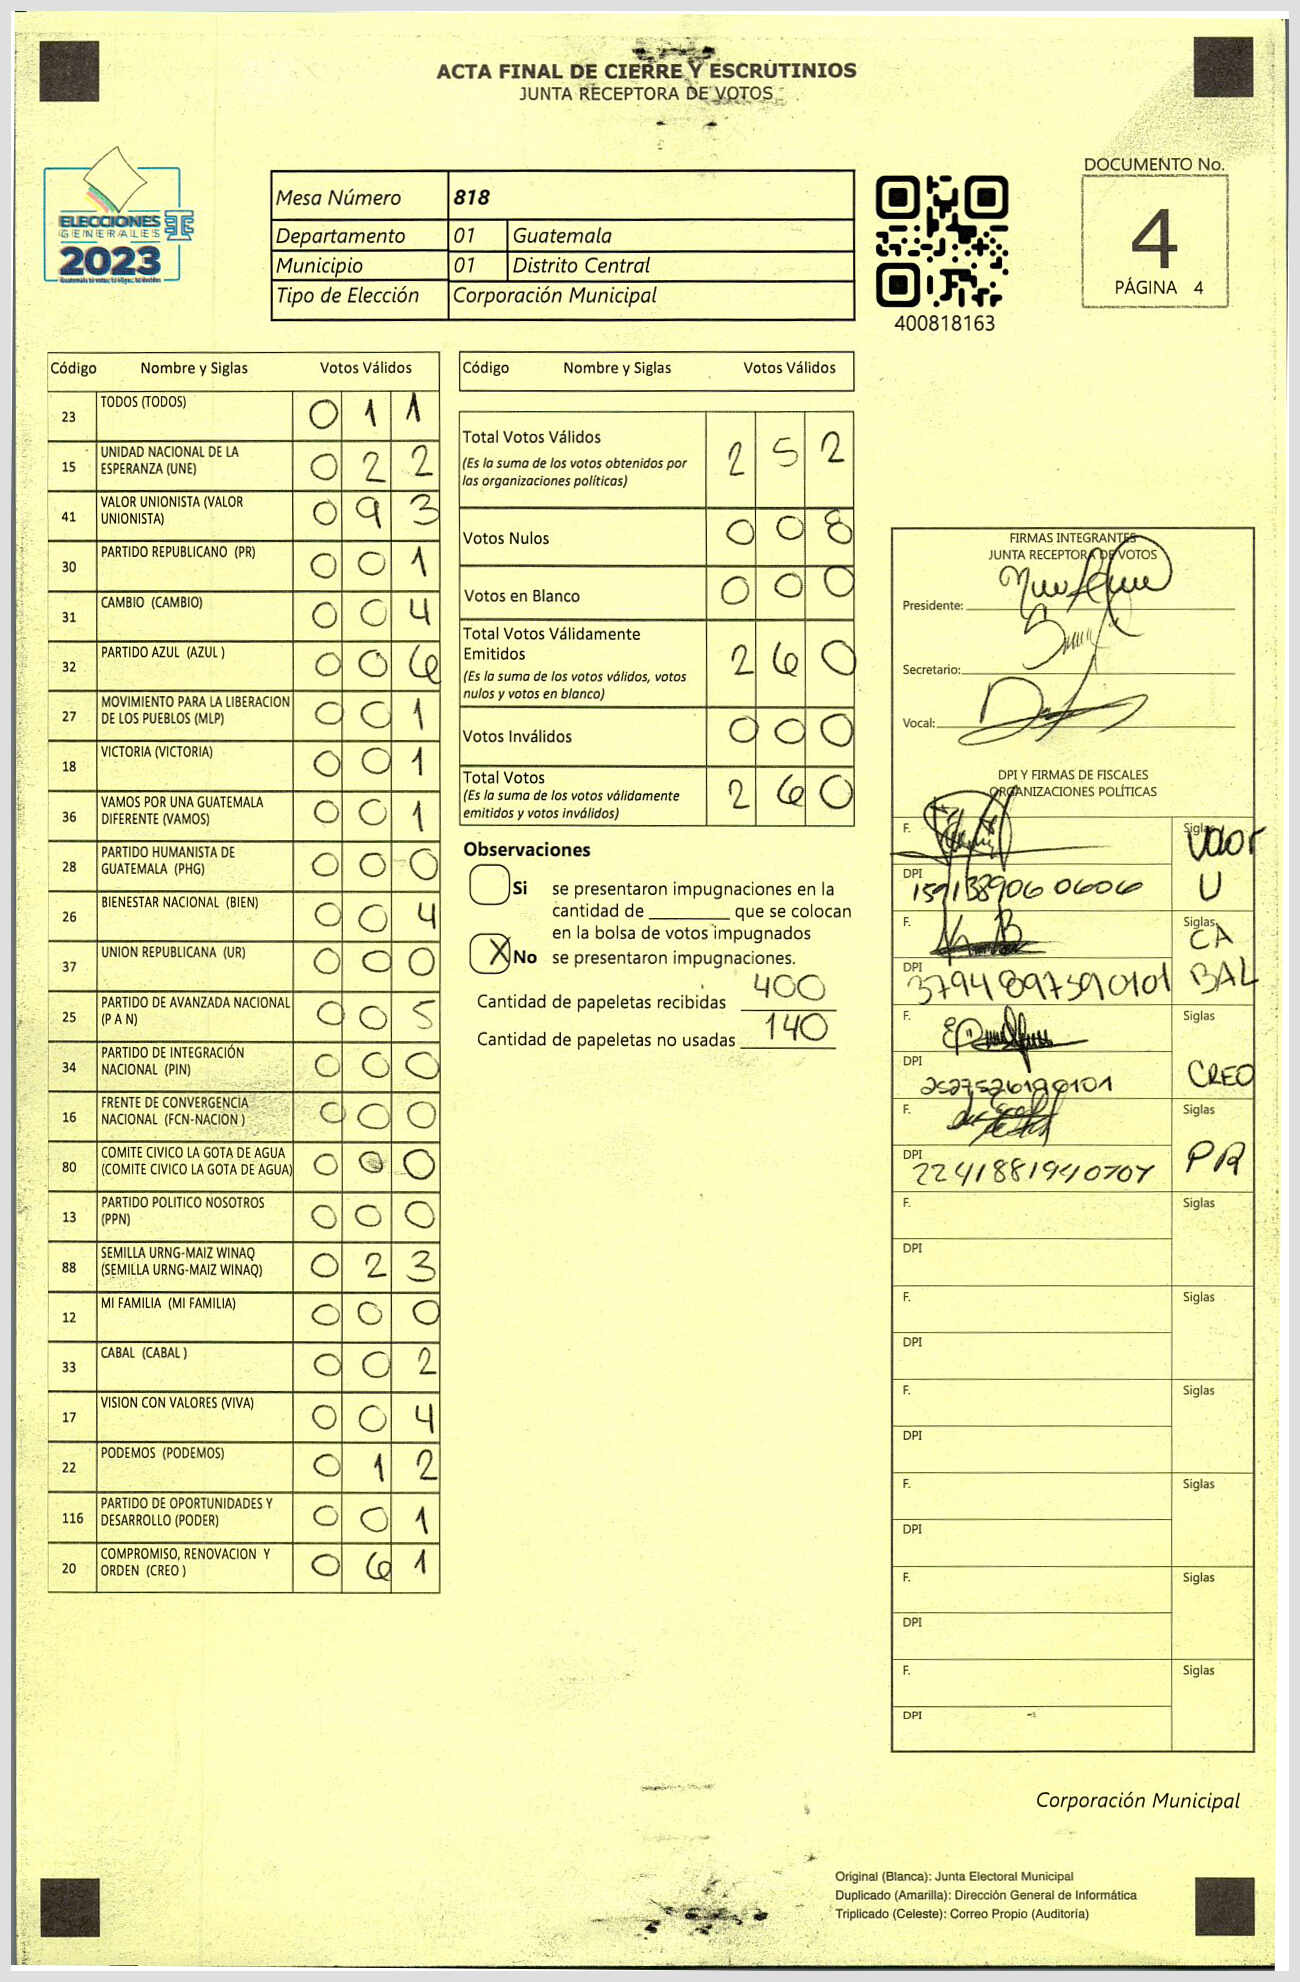 ACTA FINAL DE CIERRE Y ESCRUTINIOS
JUNTA RECEPTORA DE VOTOS
ELECCIONES
GENERALES
2023
Mesa Número 818
Departamento 01 Guatemala
Municipio 01 Distrito Central
Tipo de Elección Corporación Municipal
400818163
DOCUMENTO No.
4
PÁGINA 4
Código Nombre y Siglas Votos Válidos
23 TODOS (TODOS) 0 1 1
15 UNIDAD NACIONAL DE LA
ESPERANZA (UNE) 0 2 2
41 VALOR UNIONISTA (VALOR
UNIONISTA) 0 9 3
30 PARTIDO REPUBLICANO (PR) 0 0 1
31 CAMBIO (CAMBIO) 0 0 4
32 PARTIDO AZUL (AZUL ) 0 0 6
27 MOVIMIENTO PARA LA LIBERACION
DE LOS PUEBLOS (MLP) 0 0 1
18 VICTORIA (VICTORIA) 0 0 1
36 VAMOS POR UNA GUATEMALA
DIFERENTE (VAMOS) 0 0 1
28 PARTIDO HUMANISTA DE
GUATEMALA (PHG) 0 0 0
26 BIENESTAR NACIONAL (BIEN) 0 0 4
37 UNION REPUBLICANA (UR) 0 0 0
25 PARTIDO DE AVANZADA NACIONAL
(P A N) 0 0 5
34 PARTIDO DE INTEGRACIÓN
NACIONAL (PIN) 0 0 0
16 FRENTE DE CONVERGENCIA
NACIONAL (FCN-NACION ) 0 0 0
80 COMITE CIVICO LA GOTA DE AGUA
(COMITE CIVICO LA GOTA DE AGUA) 0 0 0
13 PARTIDO POLITICO NOSOTROS
(PPN) 0 0 0
88 SEMILLA URNG-MAIZ WINAQ
(SEMILLA URNG-MAIZ WINAQ) 0 2 3
12 MI FAMILIA (MI FAMILIA) 0 0 0
33 CABAL (CABAL ) 0 0 2
17 VISION CON VALORES (VIVA) 0 0 4
22 PODEMOS (PODEMOS) 0 1 2
116 PARTIDO DE OPORTUNIDADES Y
DESARROLLO (PODER) 0 0 1
20 COMPROMISO, RENOVACION Y
ORDEN (CREO ) 0 6 1
Código Nombre y Siglas Votos Válidos
Total Votos Válidos 2 5 2
(Es la suma de los votos obtenidos por
las organizaciones políticas)
Votos Nulos 0 0 8
Votos en Blanco 0 0 0
Total Votos Válidamente
Emitidos 2 6 0
(Es la suma de los votos válidos, votos
nulos y votos en blanco)
Votos Inválidos 0 0 0
Total Votos 2 6 0
(Es la suma de los votos válidamente
emitidos y votos inválidos)
Observaciones
Si se presentaron impugnaciones en la
cantidad de ________ que se colocan
en la bolsa de votos impugnados
X No se presentaron impugnaciones.
Cantidad de papeletas recibidas 400
Cantidad de papeletas no usadas 140
FIRMAS INTEGRANTES
JUNTA RECEPTORA DE VOTOS
Presidente:
Secretario:
Vocal:
DPI Y FIRMAS DE FISCALES
ORGANIZACIONES POLÍTICAS
F. Siglas
Valor
DPI U
F. Siglas
CA
DPI 3794897590101 BAL
F. Siglas
DPI CREO
2527526190101
F. Siglas
DPI PR
2241881940707
F. Siglas
DPI
F. Siglas
DPI
F. Siglas
DPI
F. Siglas
DPI
F. Siglas
DPI
F. Siglas
DPI
Corporación Municipal
Original (Blanca): Junta Electoral Municipal
Duplicado (Amarilla): Dirección General de Informática
Triplicado (Celeste): Correo Propio (Auditoría)